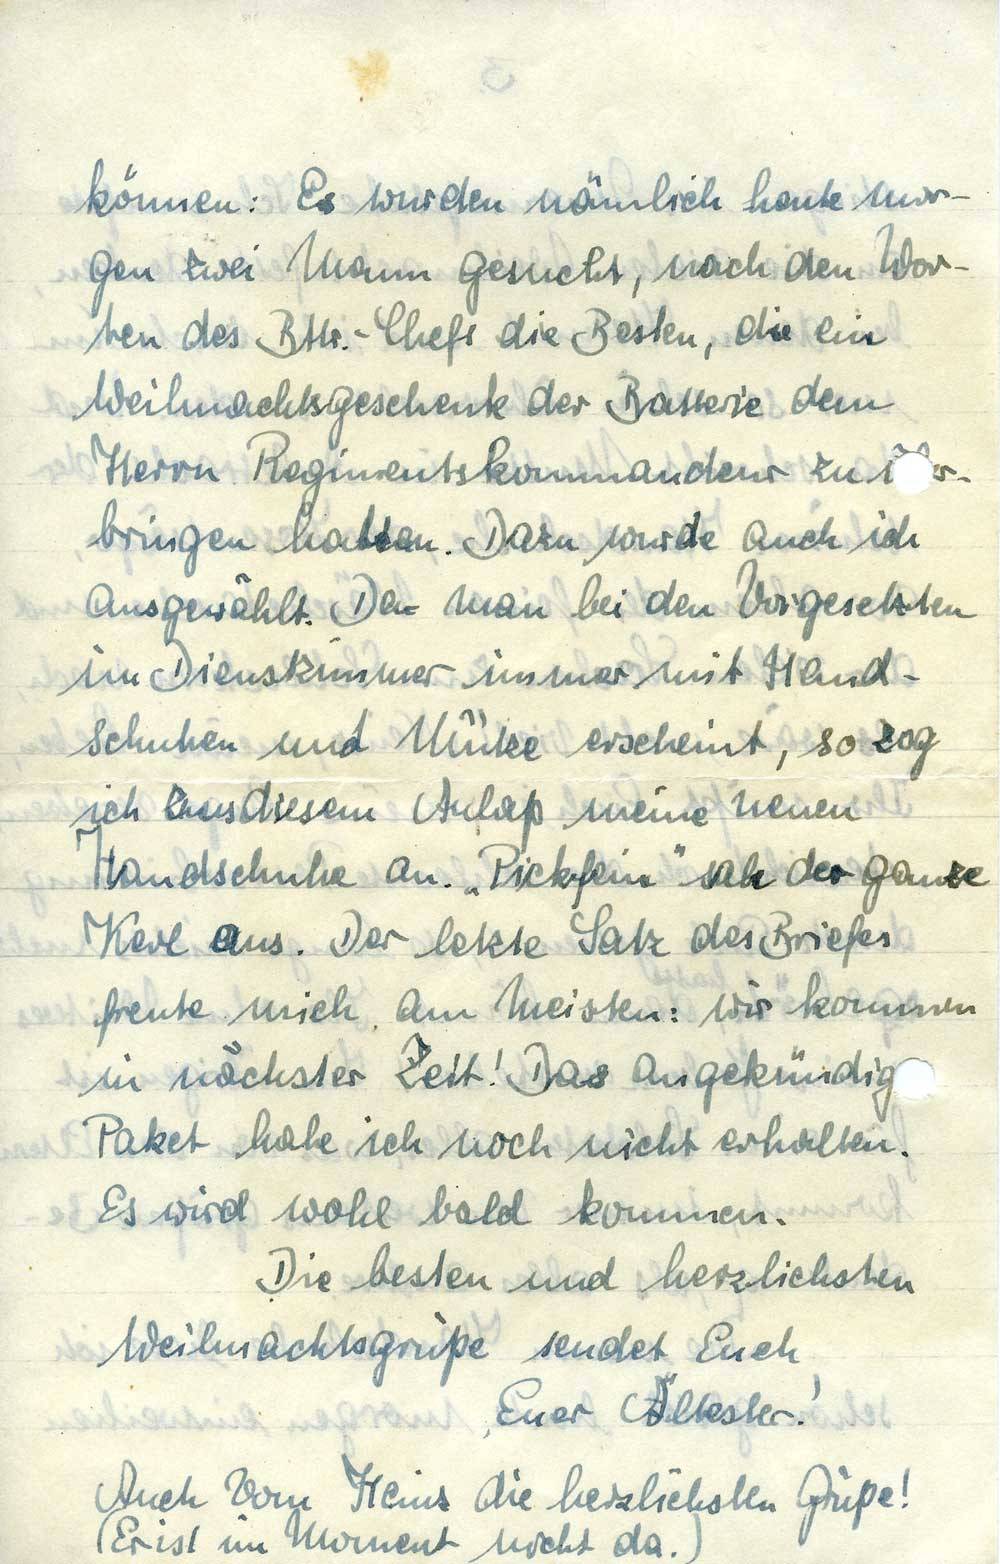 können: Es wurden nämlich heute mor-
gen zwei Mann gesucht, nach den Wor-
ten des Bttr.-Chefs die Besten, die ein
Weihnachtsgeschenk der Batterie dem
Herrn Regimentskommandeur zu
bringen hatten. Dazu wurde auch ich
ausgewählt. Da man bei den Vorgesetzten
im Dienstzimmer immer mit Hand-
schuhen und Mütze erscheint, so zog
ich aus diesem Anlaß meine neuen
Handschuhe an. „Pickfein“ sah der ganze
Kerl aus. Der letzte Satz des Briefes
freute mich am meisten: wir kommen
in nächster Zeit! Das angekündig
Paket habe ich noch nicht erhalten.
Es wird wohl bald kommen.
Die besten und herzlichsten
Weihnachtsgrüße sendet Euch
Euer Ältester!
Auch vom Heinz die herzlichsten Grüße!
(Er ist im Moment nicht da.)